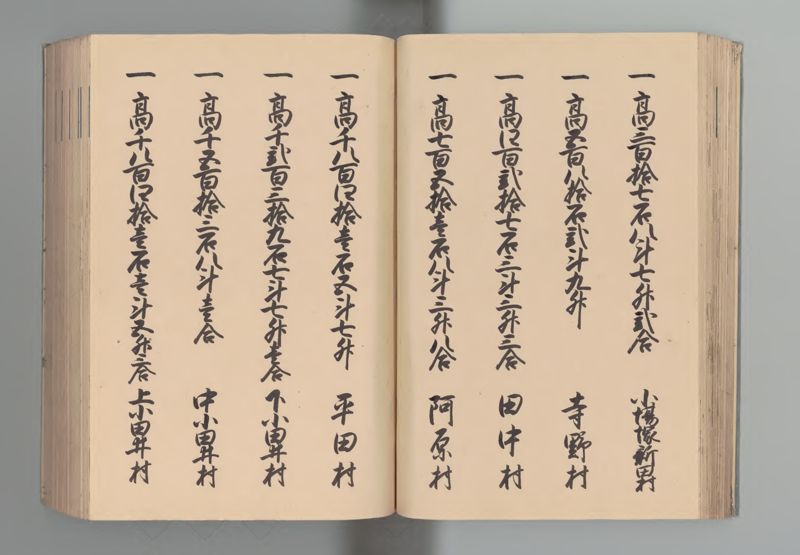 一 高三百拾七石八斗七升弐合 小場塚新田村
一 高五百八拾石弐斗九升 寺野村
一 高四百弐拾七石三斗三升三合 田中村
一 高七百五拾壱石八斗三升八合 阿原村
一 高千八百四拾壱石五斗七升 平田村
一 高千弐百三拾九石七斗七升壱合 下小田井村
一 高千五百拾三石八斗壱合 中小田井村
一 高千八百四拾壱石壱斗五升三合 上小田井村